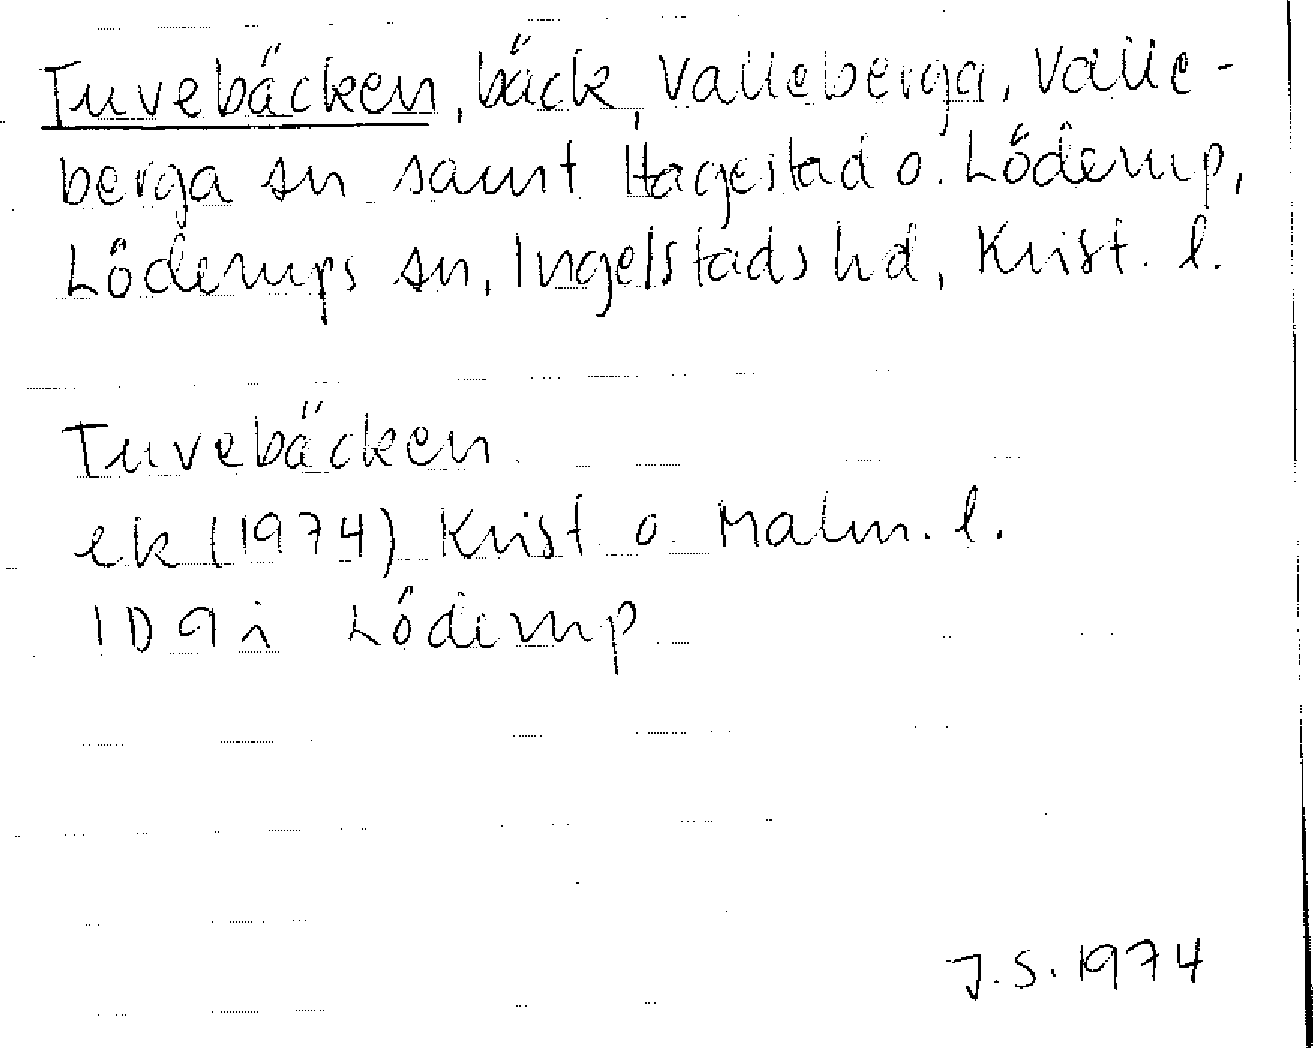 Tuvebäcken, bäck, Valleberga, Valle-
berga sn samt Hagestad o. Löderup,
Löderups sn, Ingelstads hd, Krist. l.
Tuvebäcken
ek (1974) Krist o. Malm. l.
1D9i Löderup
J.S. 1974